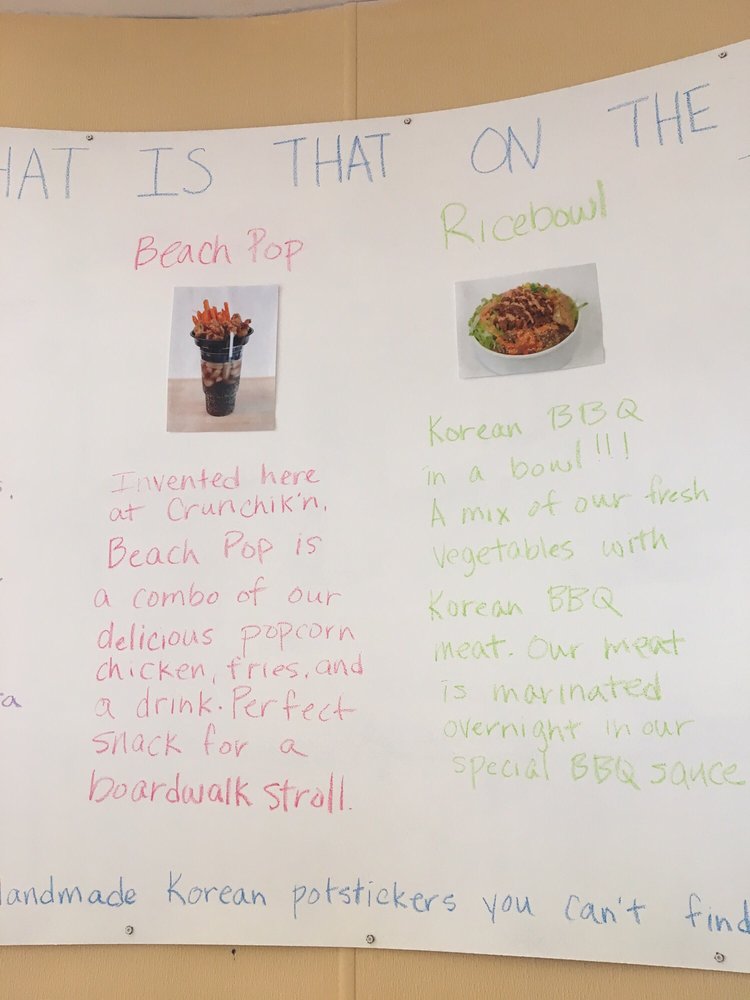 HAT IS THAT ON THE
Beach Pop
Invented here
at Crunchik'n.
Beach Pop is
a combo of our
delicious popcorn
chicken, fries, and
a drink. Perfect
snack for a
boardwalk stroll.
Ricebowl
Korean BBQ
in a bowl!!!
A mix of our fresh
vegetables with
Korean BBQ
meat. Our meat
is marinated
overnight in our
special BBQ sauce
andmade Korean potstickers you can't find